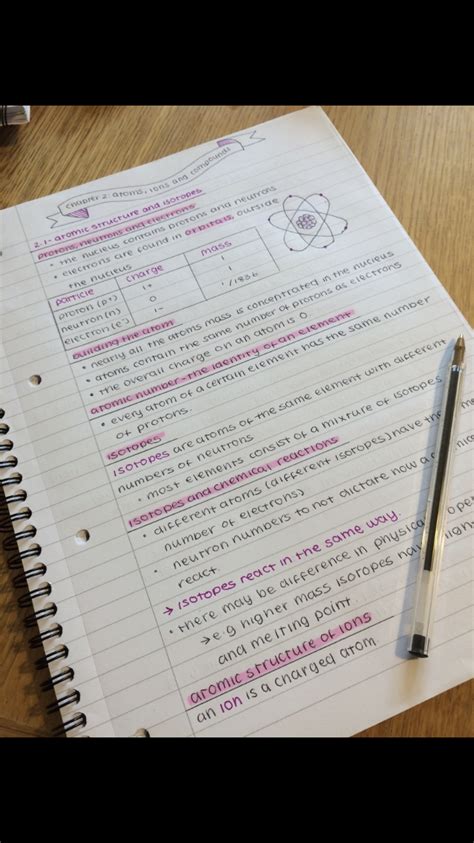 chapter 2: atoms, ions and compounds
2.1 - atomic structure and isotopes
protons, neutrons and electrons
• the nucleus contains protons and neutrons
• electrons are found in orbitals outside
the nucleus
particle charge mass
proton (p⁺) 1+ 1
neutron (n) 0 1
electron (e⁻) 1- 1/1836
building the atom
• nearly all the atoms mass is concentrated in the nucleus
• atoms contain the same number of protons as electrons
• the overall charge on an atom is 0.
atomic number - the identity of an element
• every atom of a certain element has the same number
of protons.
isotopes
isotopes are atoms of the same element with different
numbers of neutrons
• most elements consist of a mixture of isotopes
isotopes and chemical reactions
• different atoms (different isotopes) have the
number of electrons)
• neutron numbers to not dictate how a
react.
→ isotopes react in the same way.
• there may be difference in physical
→ e.g higher mass isotopes have higher
and melting point
atomic structure of ions
an ion is a charged atom